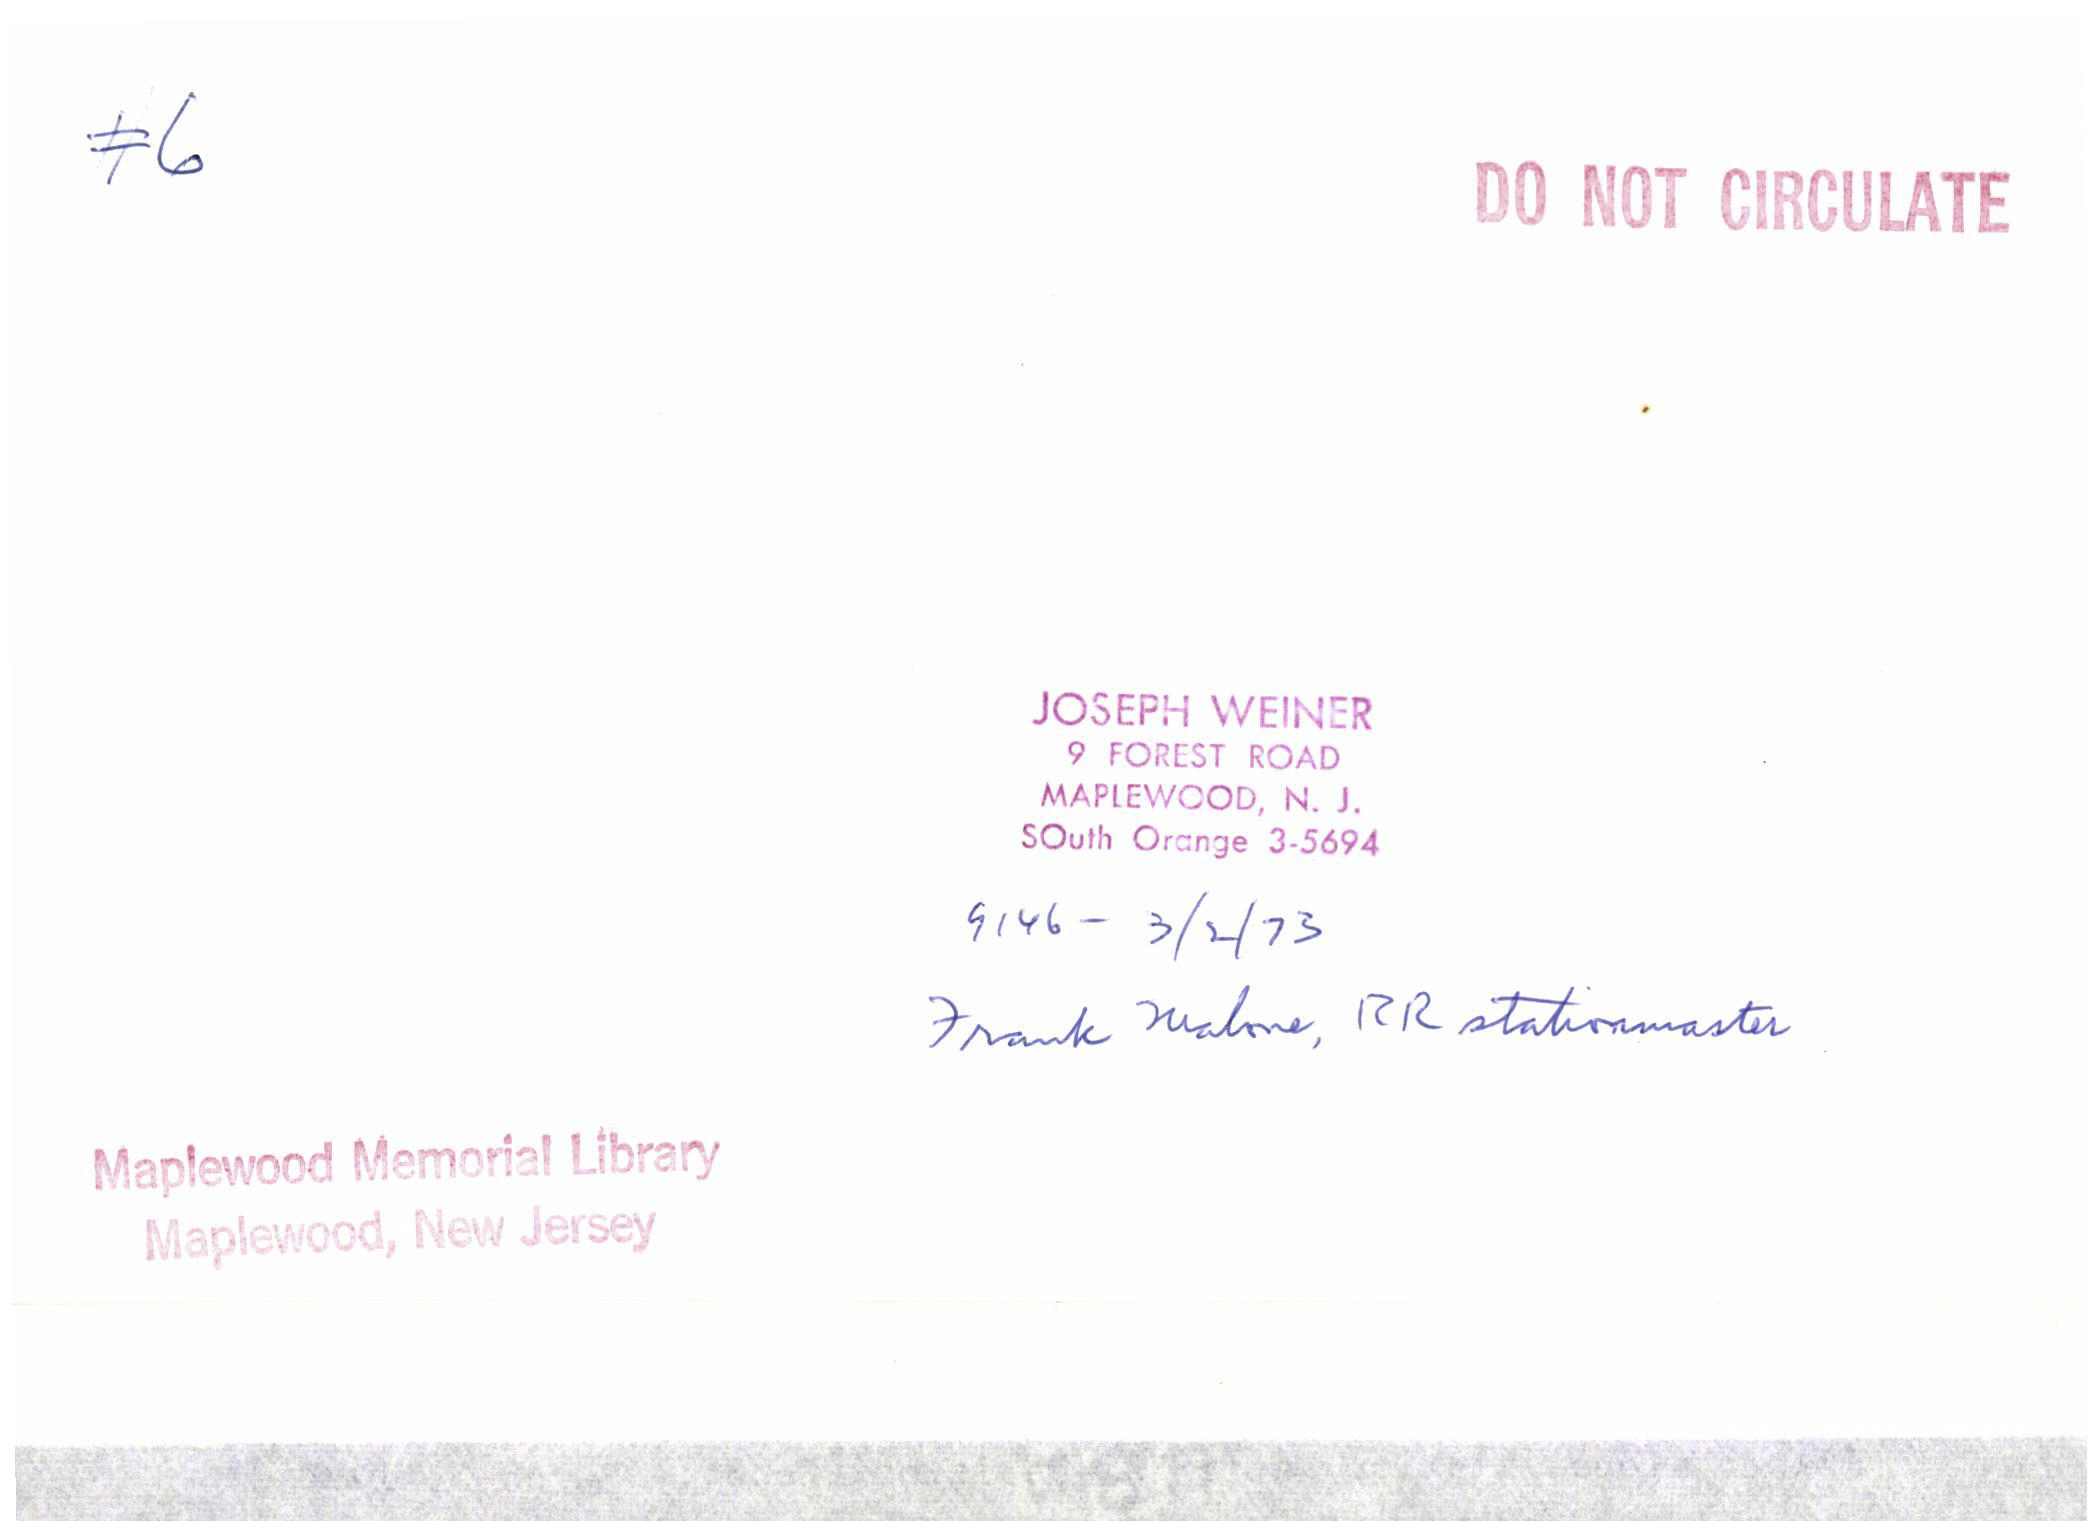 #6
DO NOT CIRCULATE
JOSEPH WEINER
9 FOREST ROAD
MAPLEWOOD, N. J.
SOuth Orange 3-5694
9146 - 3/2/73
Frank Malone, RR stationmaster
Maplewood Memorial Library
Maplewood, New Jersey